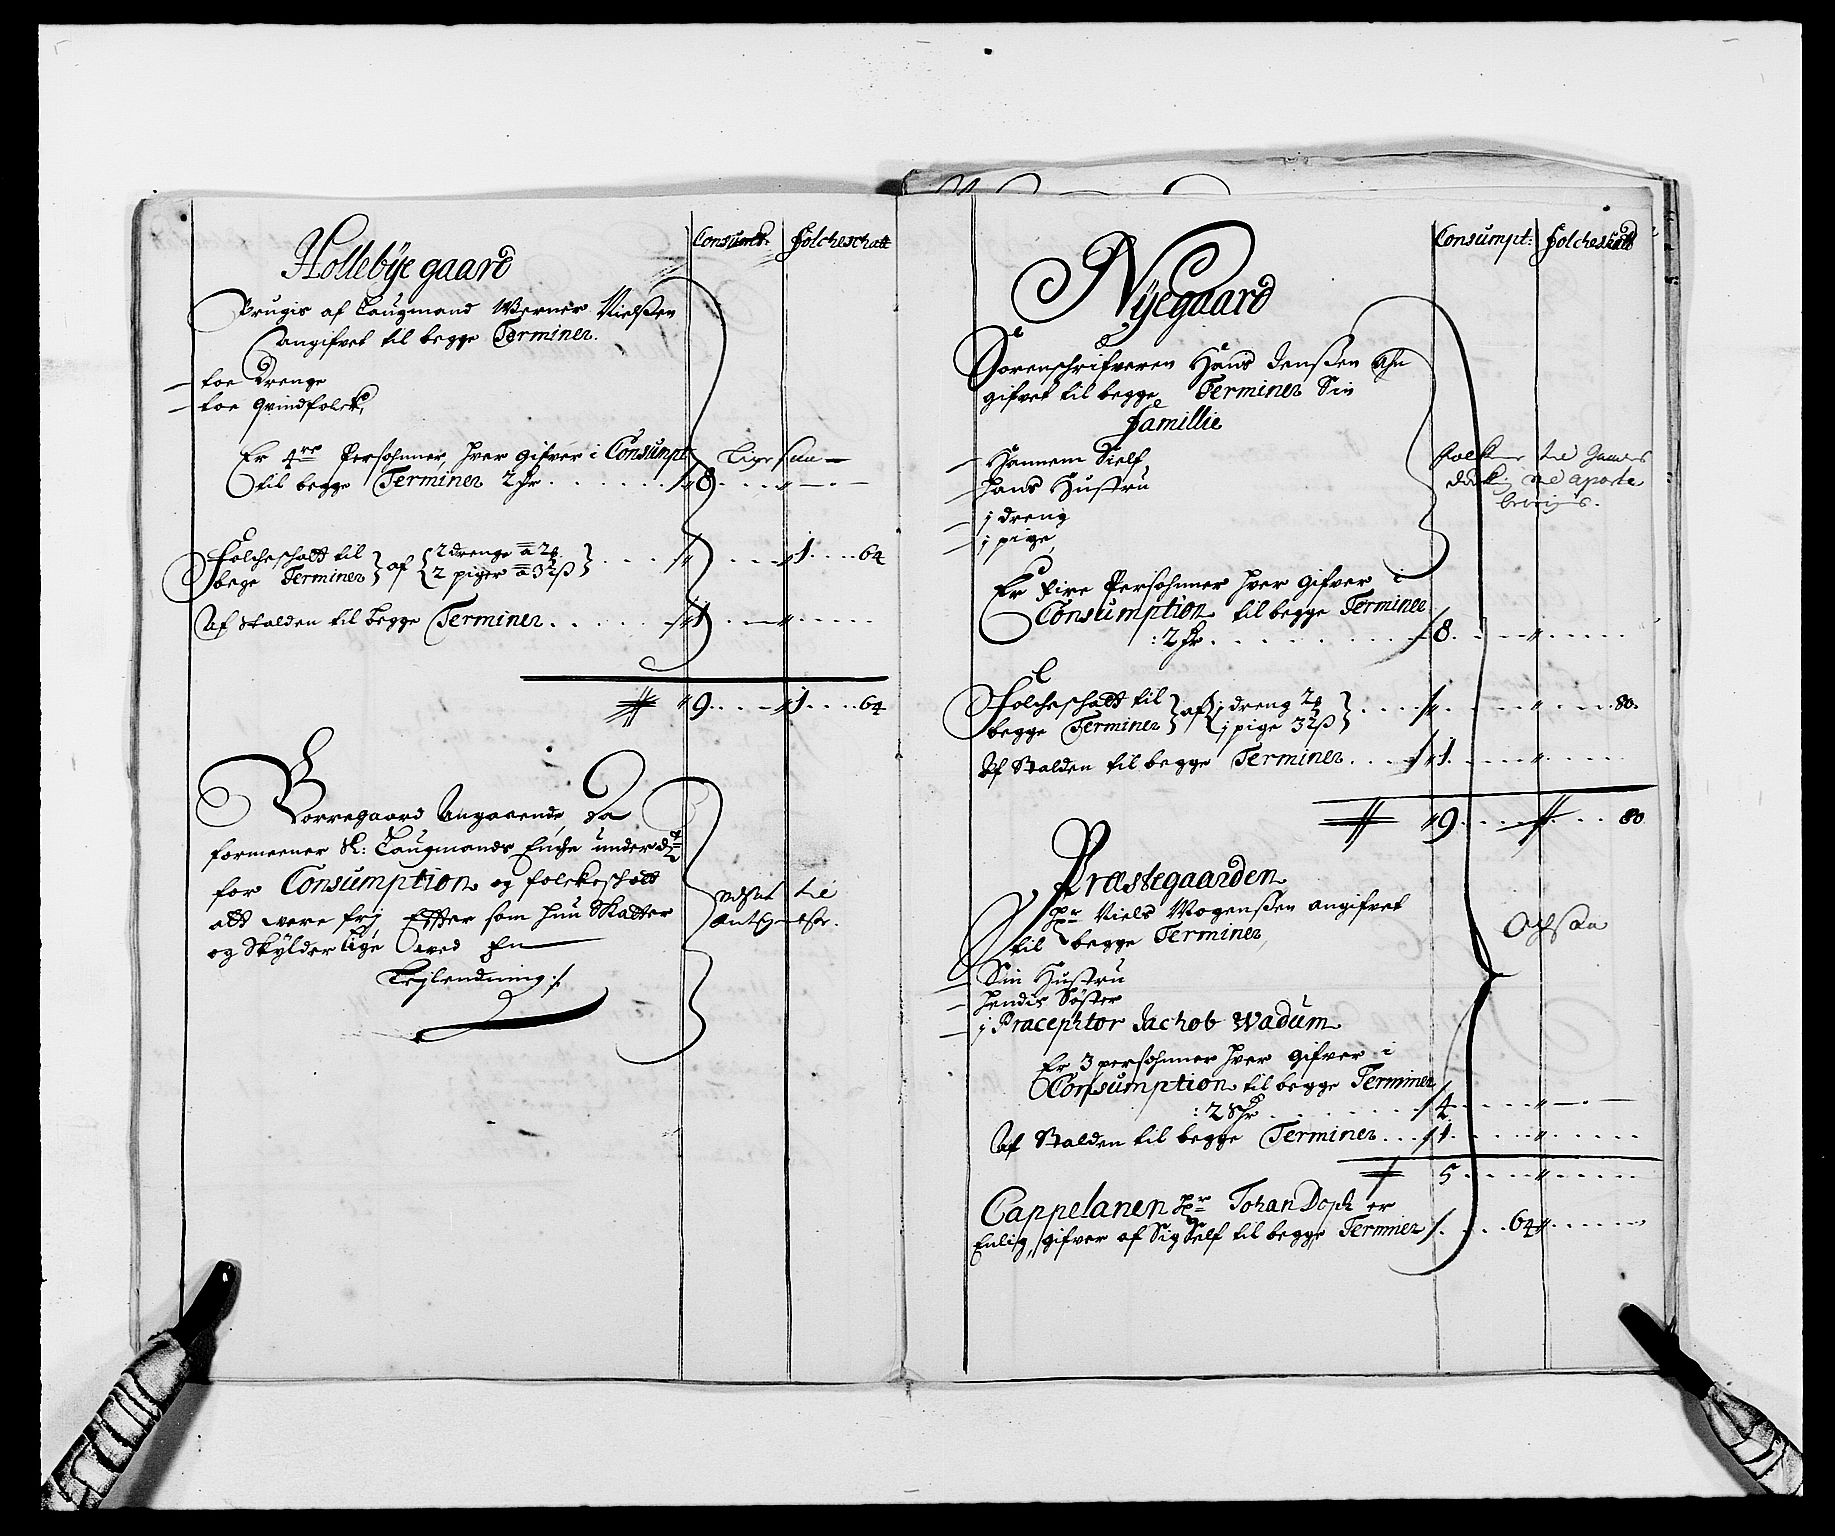 Consumt: Folcheschatt
Hollebÿe gaard
Brugis af Laugmand Werner Nielßen
angifvet til begge Terminer.
— toe Drenge
— toe qvindfolck,
Er 4re Persohner, hver gifver i Consumpt
til begge Terminer 2 ... 8
Folcheschatt til
bege Terminer } af { 2 drenge à 24
2 piger à 3½ ß } ... 1 .... 64
Af Stalden til begge Terminer ..... 1
9 .... 1 .... 64
Borregaard Angaaende, da
formeener Sl: Laugmands Enche under
for Consumption og folckeschatt
att were frj Effter som hun Skatter
og Skÿlder lige ved En
Leÿlendning ./.
Consumpt: Folcheskatt
Nÿegaard
Sorenschrifveren Hans Jenßen
gifvet til begge Terminer Sin
Famillie
— Hannem Sielf
— hans Hustru
— j dreng
— j pige
Er Fire Persohner hver gifver i
Consumption til begge Terminer
: 2 ..... 8
Folcheschatt til
begge Terminer } af { j dreng 24
j pige 3½ ß } .... 80.
Af Stalden til begge Terminer .... 1
9 .... 80
Præstegaarden
Hr Niels Mogenßen angifvet
til begge Terminer
— Sin Hustru
— hendis Söster
— j Præceptor Jachob Wadum
Er 3 persohner hver gifver i
Consumption til begge Terminer
: 2 ..... 4
Af Stalden til begge Terminer ... 1
5
Cappelanen Hr Johan Doph er
Enlig, gifver af Sig Self til begge Terminer .... 64